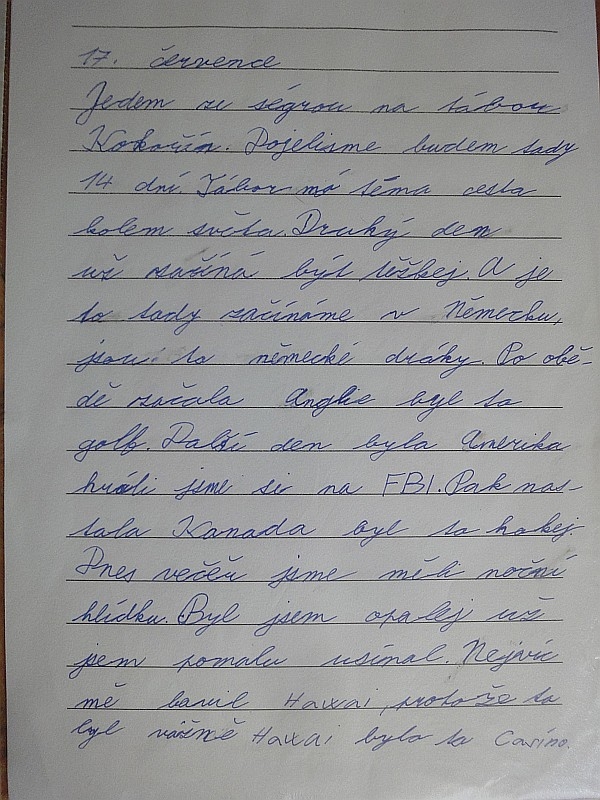 17. července
Jedem ze ségrou na tábor
Kokořín. Dojelisme budem tady
14 dní. Tábor má téma cesta
kolem světa. Druhý den
už začíná být těžkej. A je
to tady začínáme v Německu,
jsou to německé dráky. Po obě-
dě začala Anglie byl to
golf. Další den byla Amerika
hráli jsme si na FBI. Pak nas-
tala Kanada byl to hokej.
Dnes večeru jsme měli noční
hlídku. Byl jsem opalej už
jsem pomalu usínal. Nejvíc
mě bavil Hawai, protože to
byl vážně Hawai bylo to Casino.